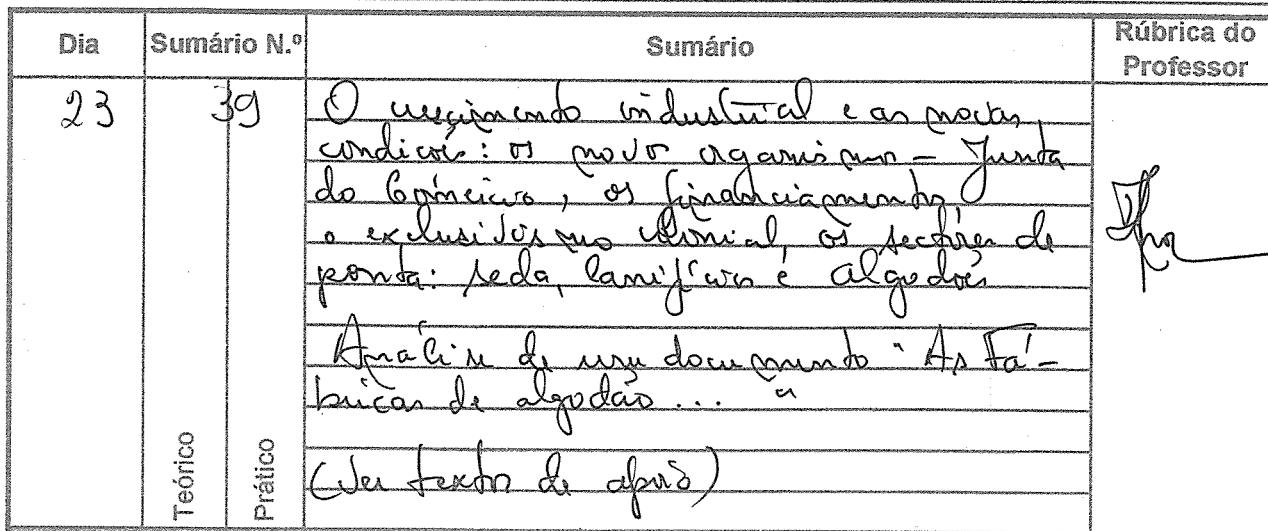 Dia
Sumário N.º
Sumário
Rúbrica do
Professor
23
39
O crescimento industrial e as novas
condições: os novos organismos - Junta
do Comércio, os financiamentos
o exclusivismo colonial, os sectores de
ponta: seda, lanifícios e algodões
Análise de um documento "As Fá-
bricas de algodão... "
(Ver textos de apoio)
Teórico
Prático